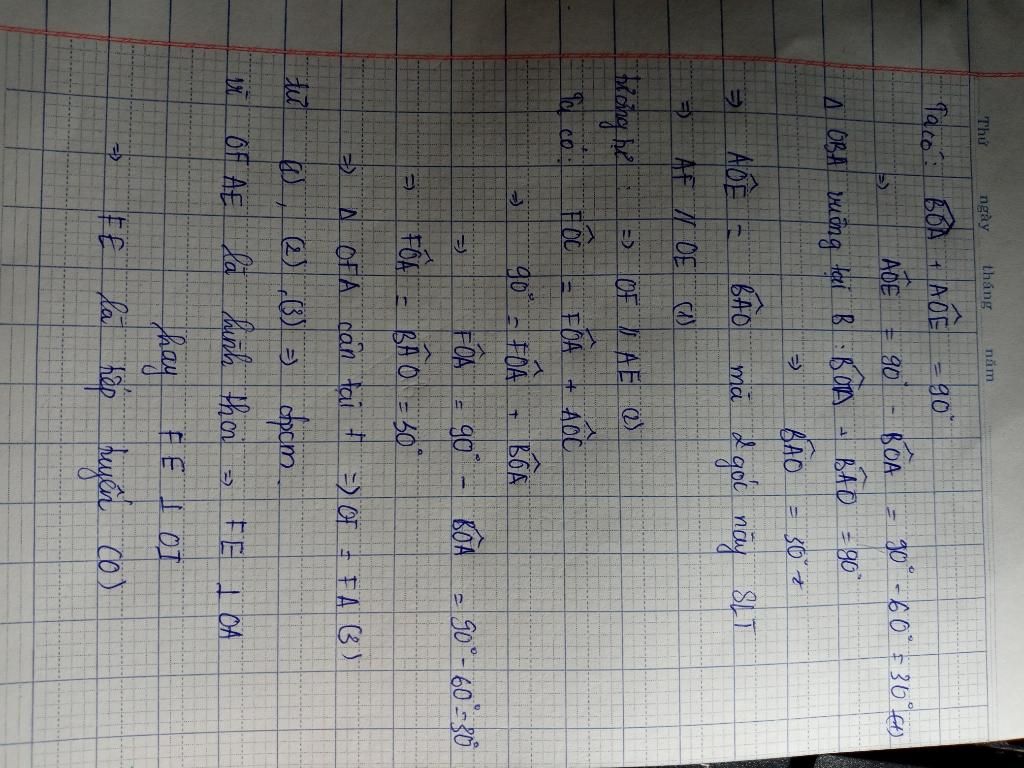 Thứ ngày tháng năm
Ta có: BÔA + AÔE = 90°
=> AÔE = 90° - BÔA = 90° - 60° = 30° (1)
Δ OBA vuông tại B: BÔA + BÂO = 90°
=> BÂO = 30°
=> AÔE = BÂO mà 2 góc này SLT
=> AF // OE (1)
=> OF // AE (2)
Ta có: FÔC = FÔA + AÔC
=> 90° = FÔA + BÔA
=> FÔA = 90° - BÔA = 90° - 60° = 30°
=> FÔA = BÂO = 30°
=> Δ OFA cân tại F => OF = FA (3)
từ (1), (2), (3) => đpcm.
Vì OFAE là hình thoi => FE ⊥ OA
hay FE ⊥ OI
=> FE là tiếp tuyến (O)